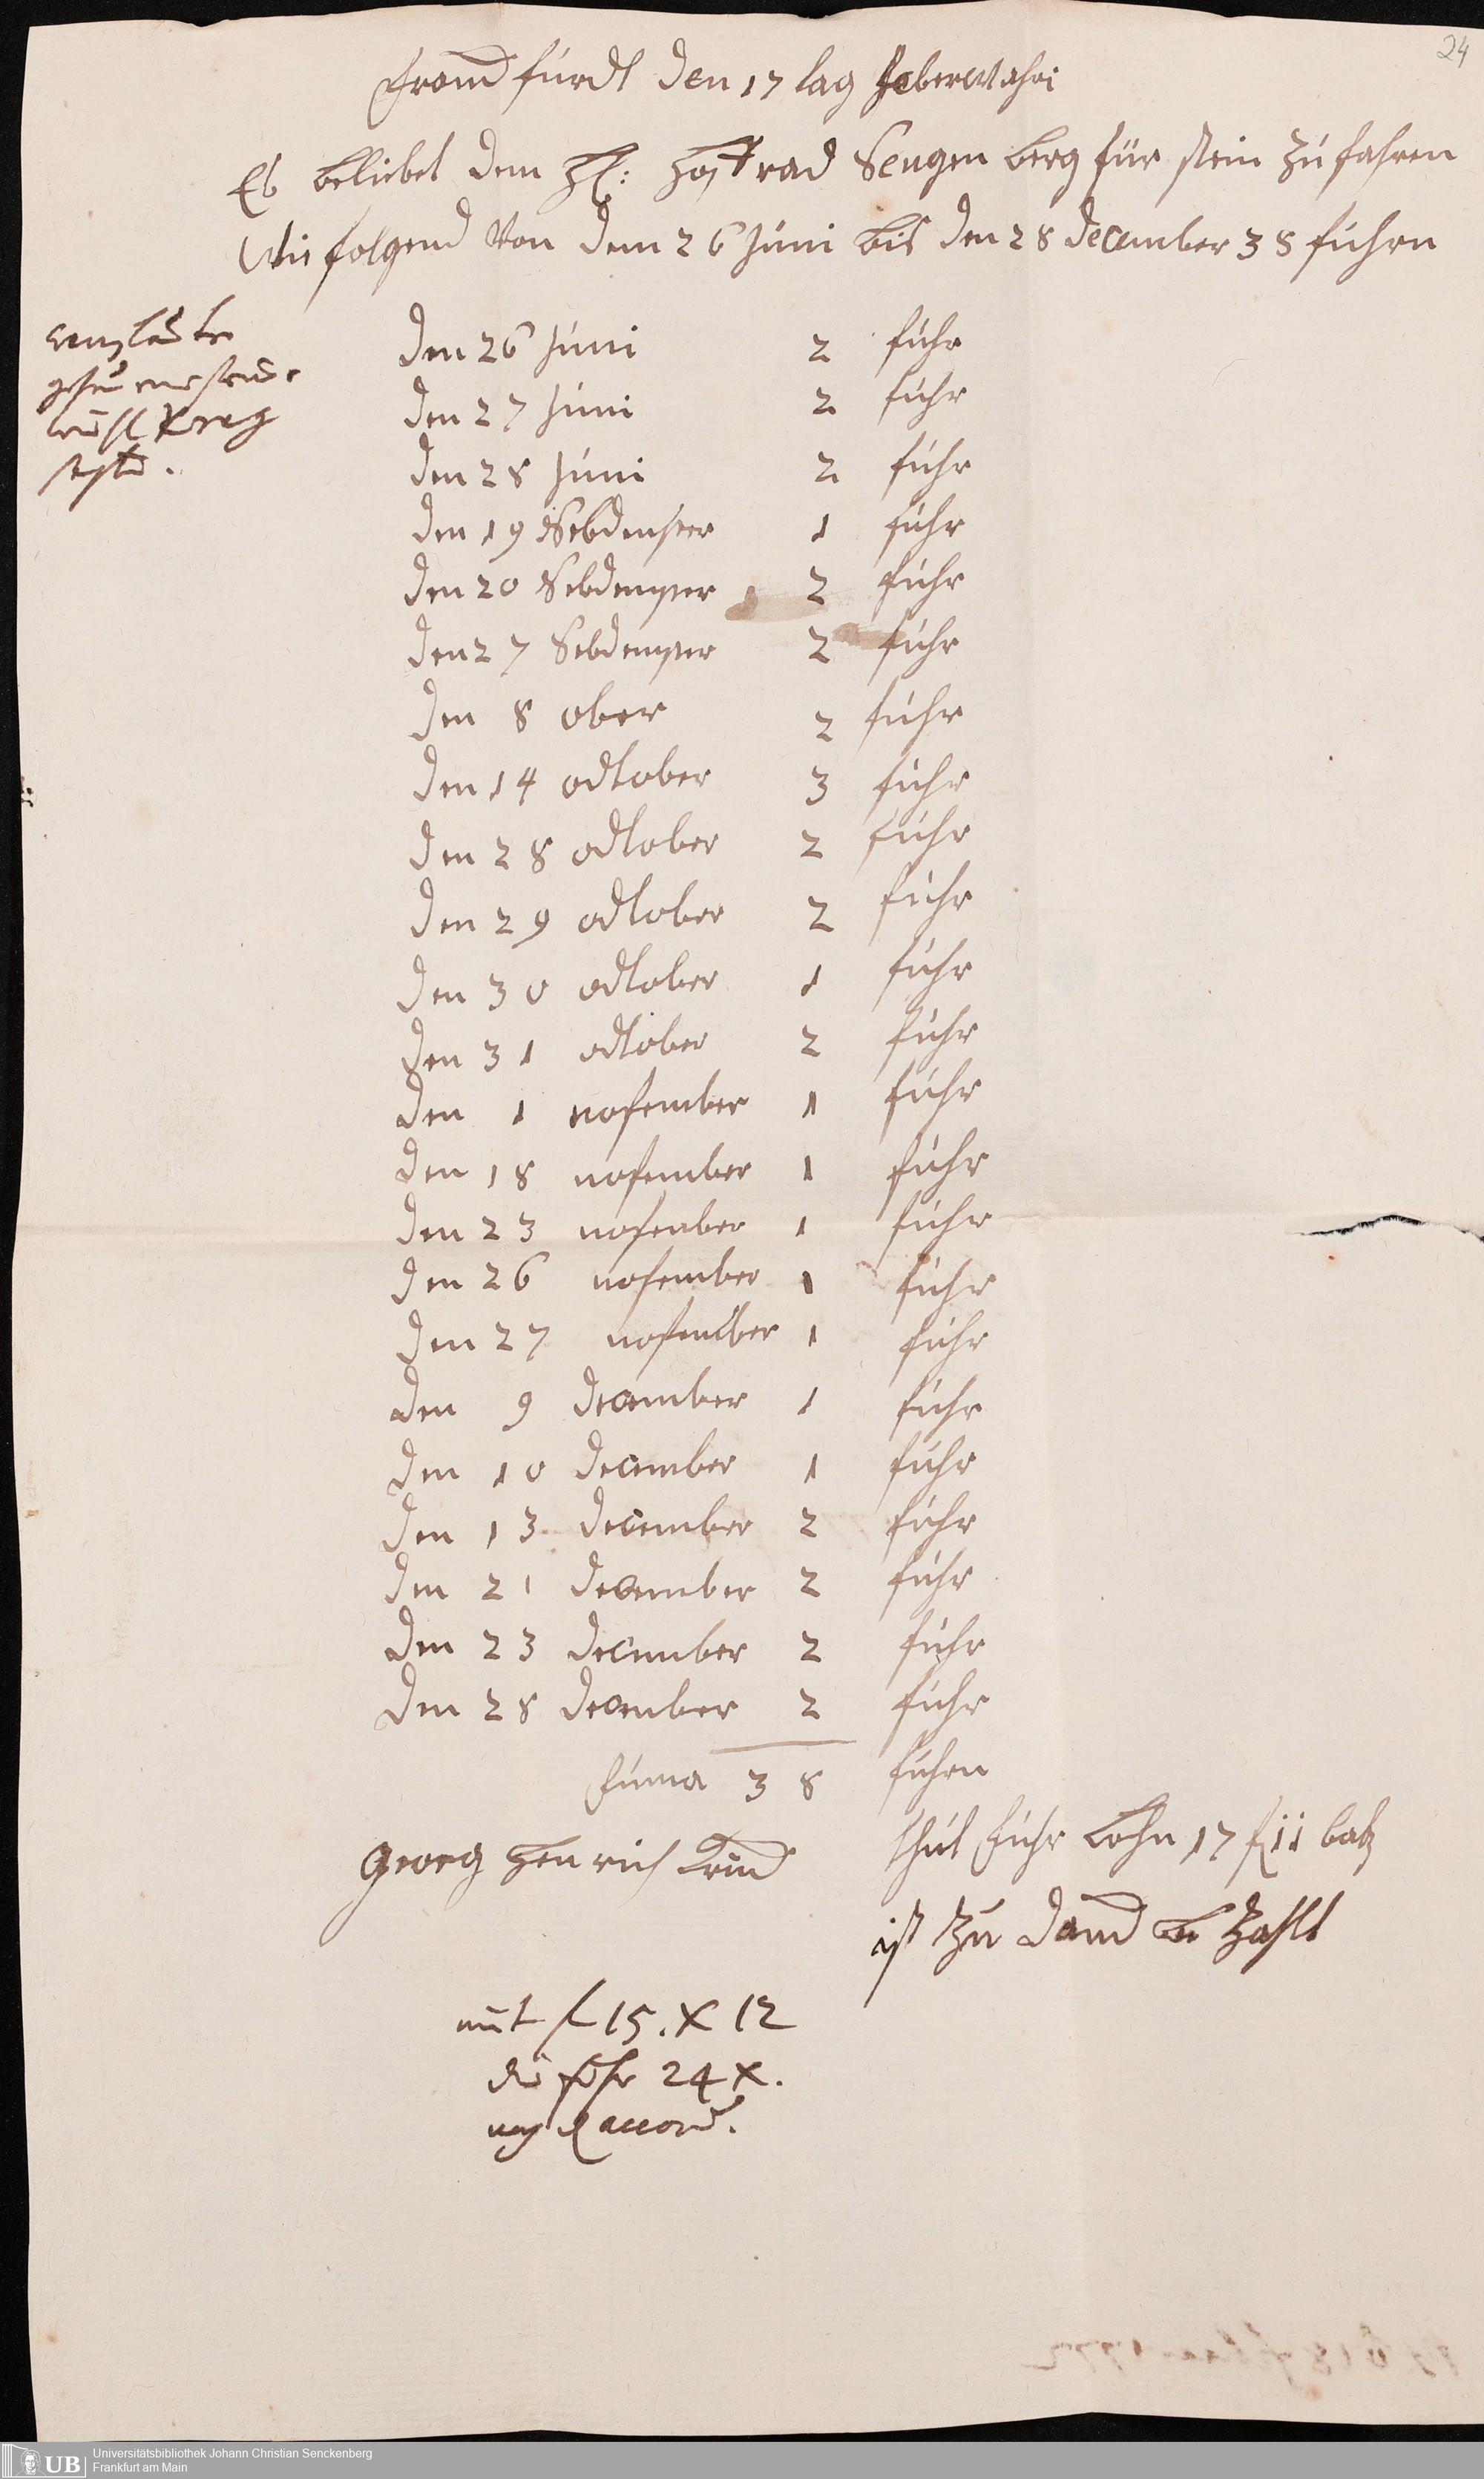 24
Franckfurdt den 17 tag Feberwahri
Es beliebet dem H: Hoffrad Sengen berg für stein zu fahren
Wie folgend Von dem 26 Juni bis den 28 december 38 fuhrn
den 26 Juni 2 fuhr
den 27 Juni 2 fuhr
den 28 Juni 2 fuhr
den 19 Sebdemper 1 fuhr
den 20 Sebdemper 2 fuhr
den 27 Sebdemper 2 fuhr
den 8 ober 2 fuhr
den 14 ocktober 3 fuhr
den 28 ocktober 2 fuhr
den 29 ocktober 2 fuhr
den 30 ocktober 1 fuhr
den 31 ocktober 2 fuhr
den 1 nofember 1 fuhr
den 18 nofember 1 fuhr
den 23 nofember 1 fuhr
den 26 nofember 1 fuhr
den 27 nofember 1 fuhr
den 9 december 1 fuhr
den 10 december 1 fuhr
den 13 december 2 fuhr
den 21 december 2 fuhr
den 23 december 2 fuhr
den 28 december 2 fuhr
Suma 38 fuhrn
thut fuhr Lohn 17 f 11 batz
Georg Henrich
ist zu danck be zahlt
mit f 15. x 12
die fuhr 24 x.
accord.
UB
Universitätsbibliothek Johann Christian Senckenberg
Frankfurt am Main